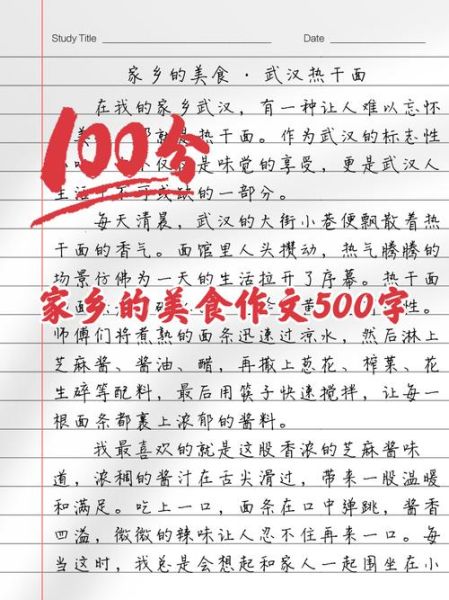 Study Title
Date
家乡的美食·武汉热干面
在我的家乡武汉，有一种让人难以忘怀
热干面。作为武汉的标志性
是味觉的享受，更是武汉人
生活 不可或缺的一部分。
100分
每天清晨，武汉的大街小巷便飘散着热
干面的香气。面馆里人头攒动，热气腾腾的
场景仿佛为一天的生活拉开了序幕。热干面
家乡的美食作文500字
师傅们将煮熟的面条迅速过凉水，然后淋上
芝麻酱、酱油、醋，再撒上葱花、榨菜、花
生碎等配料，最后用筷子快速搅拌，让每一
根面条都裹上浓郁的酱料。
我最喜欢的就是这股香浓的芝麻酱味
道，浓稠的酱汁在舌尖滑过，带来一股温暖
和满足。吃上一口，面条在口中弹跳，酱香
四溢，微微的辣味让人忍不住再来一口。每
当这时，我总是会想起和家人一起围坐在小